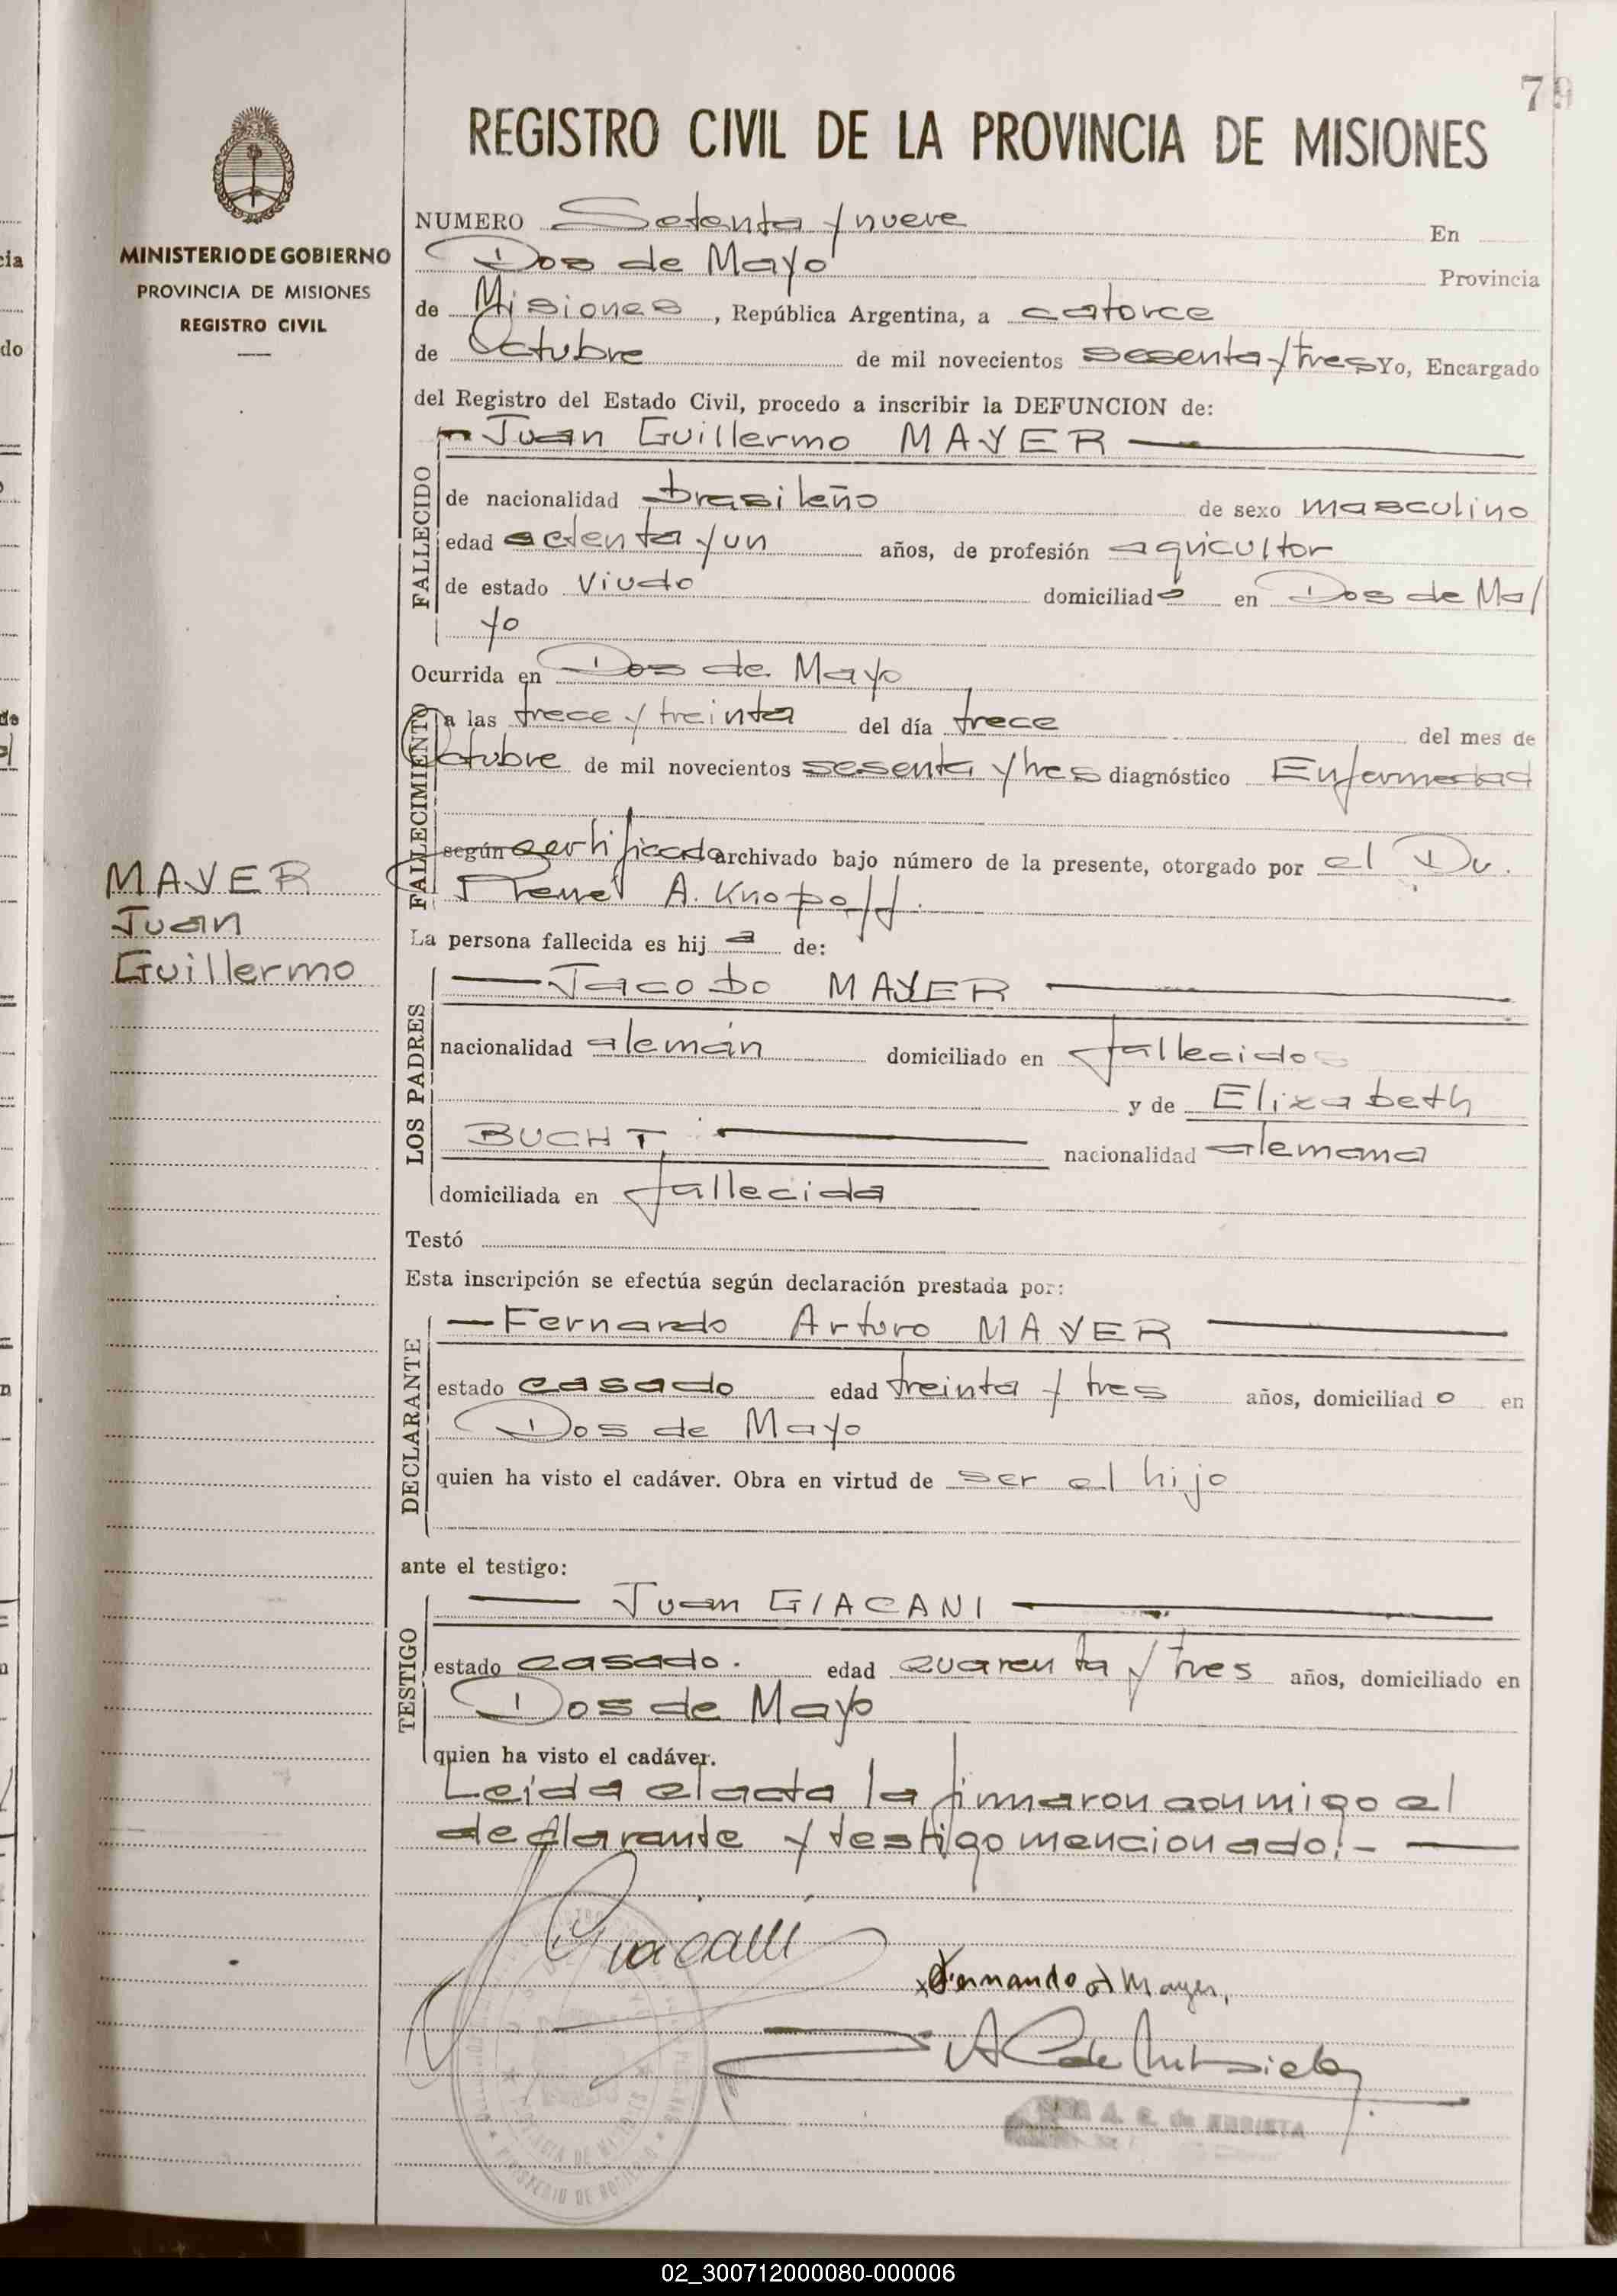 79
REGISTRO CIVIL DE LA PROVINCIA DE MISIONES
MINISTERIO DE GOBIERNO
PROVINCIA DE MISIONES
REGISTRO CIVIL
NUMERO Setenta y nueve En
Dos de Mayo Provincia
de Misiones, República Argentina, a catorce
de Octubre de mil novecientos sesenta y tres Yo, Encargado
del Registro del Estado Civil, procedo a inscribir la DEFUNCION de:
Juan Guillermo MAYER
FALLECIDO
de nacionalidad brasileño de sexo masculino
edad setenta y un años, de profesión agricultor
de estado viudo domiciliado en Dos de Ma/
yo
Ocurrida en Dos de Mayo
FALLECIMIENTO
a las trece y treinta del día trece del mes de
Octubre de mil novecientos sesenta y tres diagnóstico Enfermedad
según certificado archivado bajo número de la presente, otorgado por el Dr.
A. Knopoff.
MAYER
Juan
Guillermo
La persona fallecida es hij de:
LOS PADRES
Jacobo MAYER
nacionalidad alemán domiciliado en fallecidos
y de Elizabeth
BUCHT nacionalidad alemana
domiciliada en fallecida
Testó
Esta inscripción se efectúa según declaración prestada por:
DECLARANTE
Fernando Arturo MAYER
estado casado edad treinta y tres años, domiciliado en
Dos de Mayo
quien ha visto el cadáver. Obra en virtud de ser el hijo
ante el testigo:
TESTIGO
Juan GIACANI
estado casado. edad cuarenta y tres años, domiciliado en
Dos de Mayo
quien ha visto el cadáver.
Leída el acta la firmaron conmigo el
declarante y testigo mencionado.-
Fernando A Mayer,
02_300712000080-000006